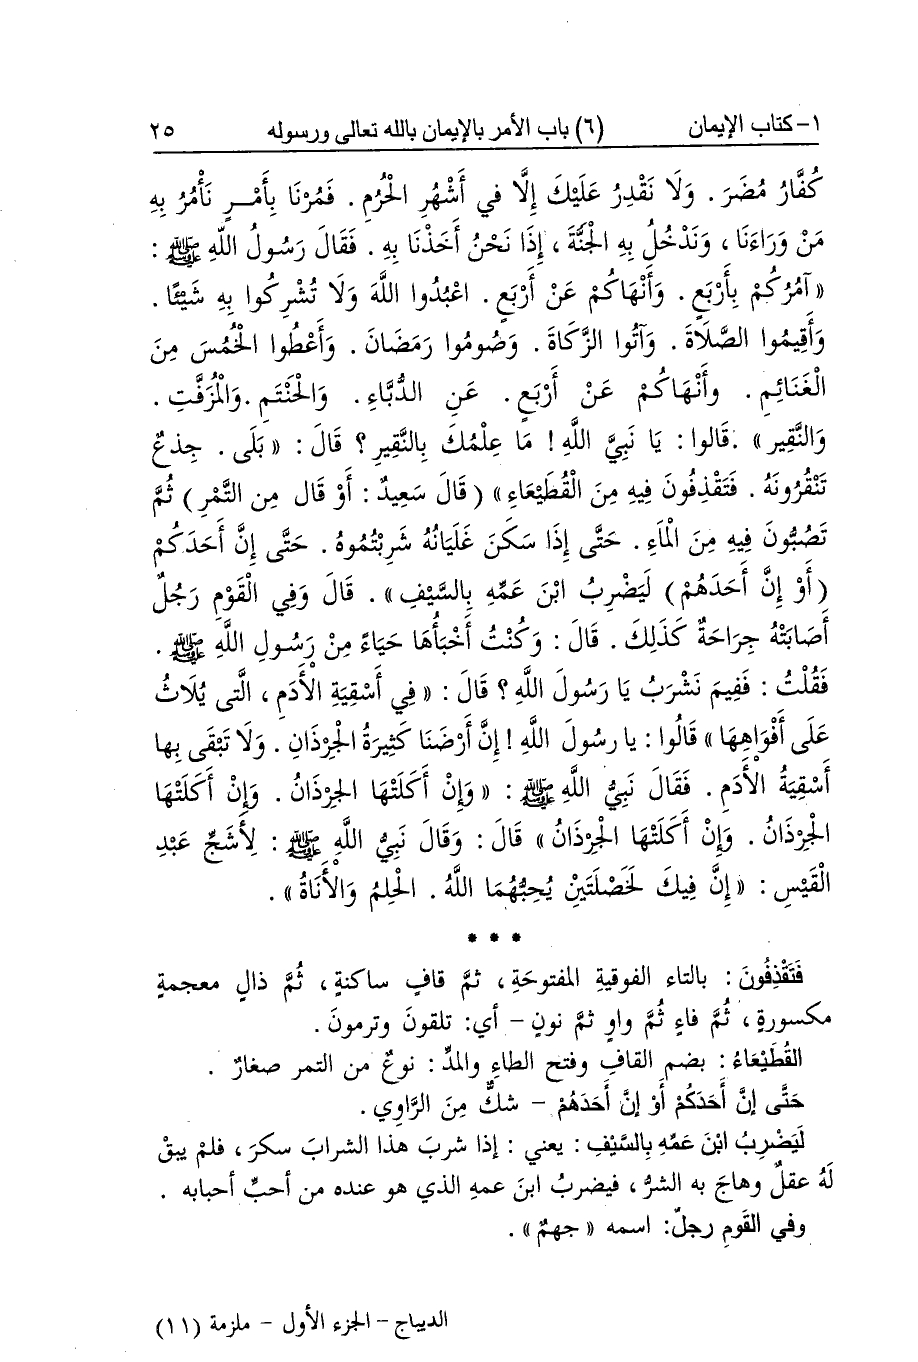 ١- كتاب الإيمان (٦) باب الأمر بالإيمان بالله تعالى ورسوله ٢٥
كُفَّارُ مُضَرَ . وَلَا نَقْدِرُ عَلَيْكَ إِلَّا في أَشْهُرِ الْحُرُمِ . فَمُرْنَا بِأَمْــرٍ نَأْمُرُ بِهِ
مَنْ وَرَاءَنَا ، وَنَدْخُلُ بِهِ الْجَنَّةَ ، إِذَا نَحْنُ أَخَذْنَا بِهِ . فَقَالَ رَسُولُ اللَّهِ ﷺ :
« آمُرُكُمْ بِأَرْبَعٍ . وَأَنْهَاكُمْ عَنْ أَرْبَعٍ . اعْبُدُوا اللَّهَ وَلَا تُشْرِكُوا بِهِ شَيْئًا .
وَأَقِيمُوا الصَّلَاةَ . وَآتُوا الزَّكَاةَ . وَصُومُوا رَمَضَانَ . وَأَعْطُوا الْخُمُسَ مِنَ
الْغَنَائِمِ . وأَنْهَاكُمْ عَنْ أَرْبَعٍ . عَنِ الدُّبَّاءِ . وَالْحَنْتَمِ .وَالْمُزَفَّتِ .
وَالنَّقِيرِ» .قَالوا : يَا نَبِيَّ اللَّهِ ! مَا عِلْمُكَ بِالنَّقِيرِ ؟ قَالَ : « بَلَى . جِذعٌ
تَنْقُرُونَهُ . فَتَقْذِفُونَ فِيهِ مِنَ الْقُطَيْعَاءِ» ( قَالَ سَعِيدٌ : أَوْ قَال مِن التَّمْرِ ) ثُمَّ
تَصُبُّونَ فِيهِ مِنَ الْمَاءِ . حَتَّى إِذَا سَكَنَ غَلَيَانُهُ شَرِبْتُمُوهُ . حَتَّى إِنَّ أَحَدَكُمْ
( أَوْ إِنَّ أَحَدَهُمْ ) لَيَضْرِبُ ابْنَ عَمِّهِ بِالسَّيْفِ» . قَالَ وَفِي الْقَوْمِ رَجُلٌ
أَصَابَتْهُ جِرَاحَةٌ كَذَلِكَ . قَالَ : وَكُنْتُ أَخْبَأُهَا حَيَاءً مِنْ رَسُولِ اللَّهِ ﷺ .
فَقُلْتُ : فَفِيمَ نَشْرَبُ يَا رَسُولَ اللَّهِ ؟ قَالَ : « فِي أَسْقِيَةِ الْأَدَمِ ، الَّتى يُلَاثُ
عَلَى أَفْوَاهِهَا » قَالُوا : يا رسُولَ اللَّهِ ! إِنَّ أَرْضَنَا كَثِيرَةُ الْجِرْذَانِ . وَلَا تَبْقَى بِها
أَسْقِيَةُ الْأَدَمِ . فَقَالَ نَبِيُّ اللَّهِ ﷺ : « وَإِنْ أَكَلَتْهَا الجِرْذَانُ . وَإِنْ أَكَلَتْهَا
الْجِرْذَانُ . وَإِنْ أَكَلَتْهَا الْجِرْذَانُ» قَالَ : وَقَالَ نَبِيُّ اللَّهِ ﷺ : لِأَشَجِّ عَبْدِ
الْقَيْسِ : « إِنَّ فِيكَ لَخَصْلَتَيْنِ يُحِبُّهُمَا اللَّهُ . الْحِلمُ وَالْأَنَاةُ» .
* * *
فَتَقْذِفُونَ : بالتاء الفوقيةِ المفتوحَةِ ، ثمَّ قافٍ ساكنةٍ ، ثُمَّ ذالٍ معجمةٍ
مكسورةٍ ، ثُمَّ فاءٍ ثُمَّ واوٍ ثمَّ نونٍ - أي: تلقونَ وترمونَ .
القُطَيْعَاءُ : بضم القافِ وفتح الطاءِ والمدِّ : نوعٌ من التمر صغارٌ .
حَتَّى إِنَّ أَحَدَكُمْ أَوْ إِنَّ أَحَدَهُمْ - شكٌّ مِنَ الرَّاوِي .
لَيَضْرِبُ ابْنَ عَمِّهِ بِالسَّيْفِ : يعني : إذا شربَ هذا الشرابَ سكرَ ، فلمْ يبقْ
لَهُ عقلٌ وهاجَ به الشرُّ ، فيضربُ ابنَ عمهِ الذي هو عنده من أحبِّ أحبابه .
وفي القَومِ رجلٌ: اسمه « جهمٌ» .
الديباج - الجزء الأول - ملزمة (١١)